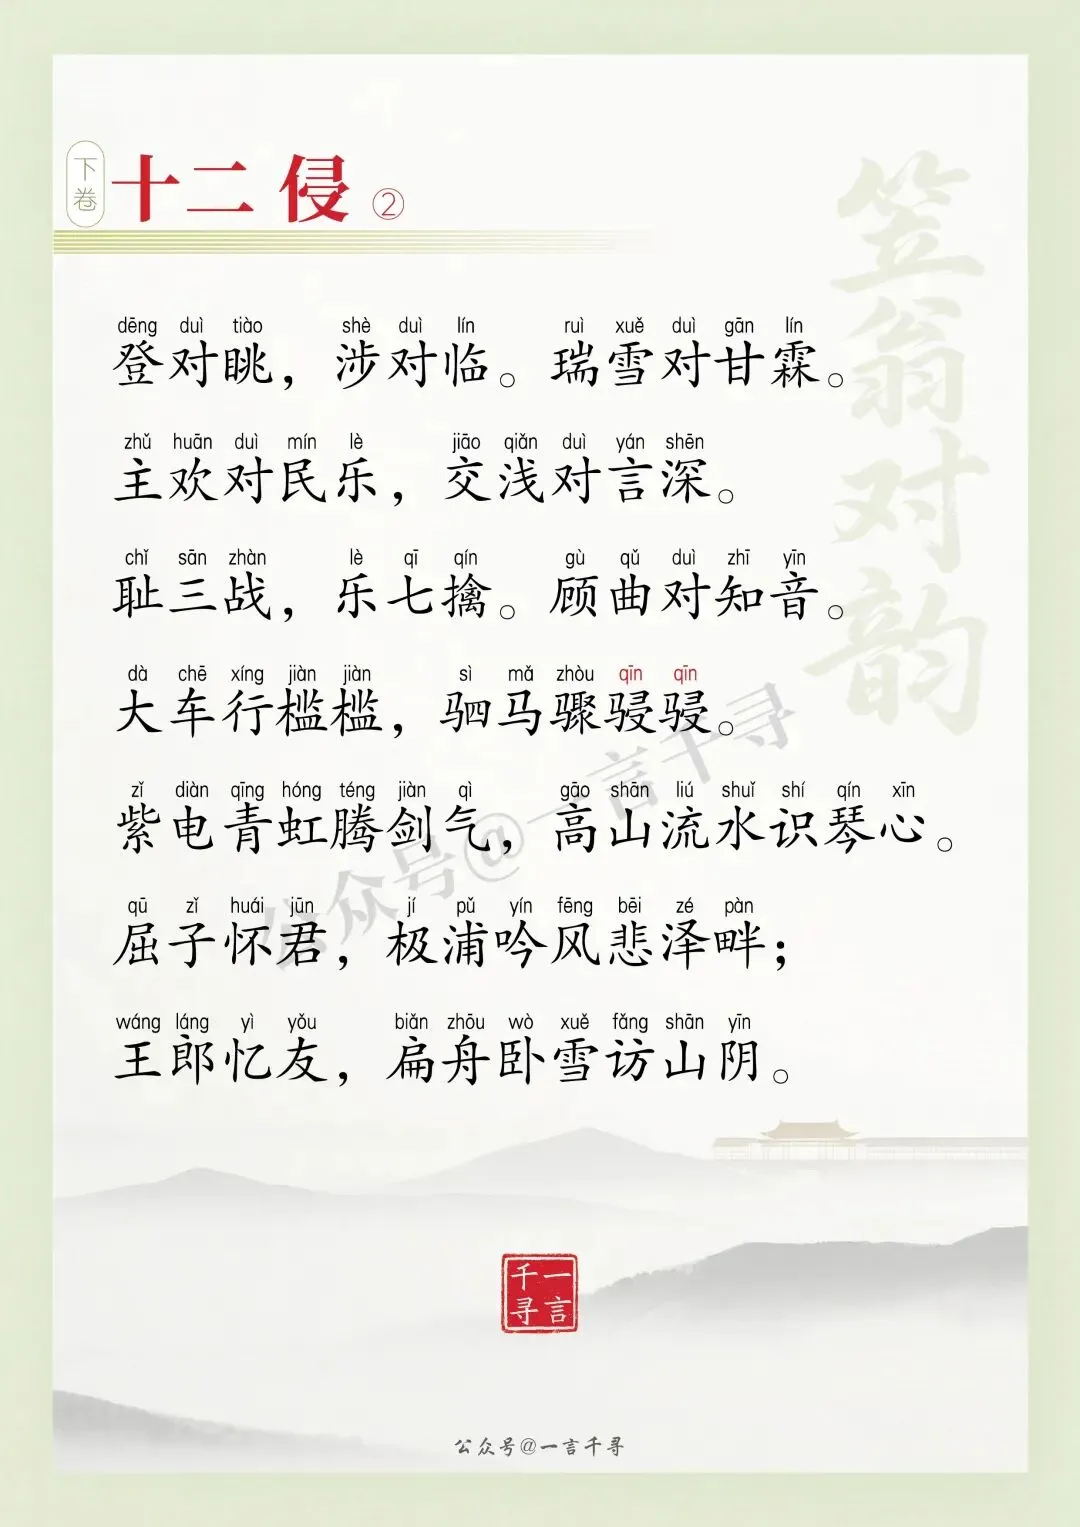 下卷
十二 侵 ②
笠翁对韵
dēng duì tiào shè duì lín ruì xuě duì gān lín
登对眺，涉对临。瑞雪对甘霖。
zhǔ huān duì mín lè jiāo qiǎn duì yán shēn
主欢对民乐，交浅对言深。
chǐ sān zhàn lè qī qín gù qǔ duì zhī yīn
耻三战，乐七擒。顾曲对知音。
dà chē xíng jiàn jiàn sì mǎ zhòu qīn qīn
大车行槛槛，驷马骤骎骎。
zǐ diàn qīng hóng téng jiàn qì gāo shān liú shuǐ shí qín xīn
紫电青虹腾剑气，高山流水识琴心。
qū zǐ huái jūn jí pǔ yín fēng bēi zé pàn
屈子怀君，极浦吟风悲泽畔；
wáng láng yì yǒu biǎn zhōu wò xuě fǎng shān yīn
王郎忆友，扁舟卧雪访山阴。
公众号@一言千寻
一言千寻
公众号@一言千寻